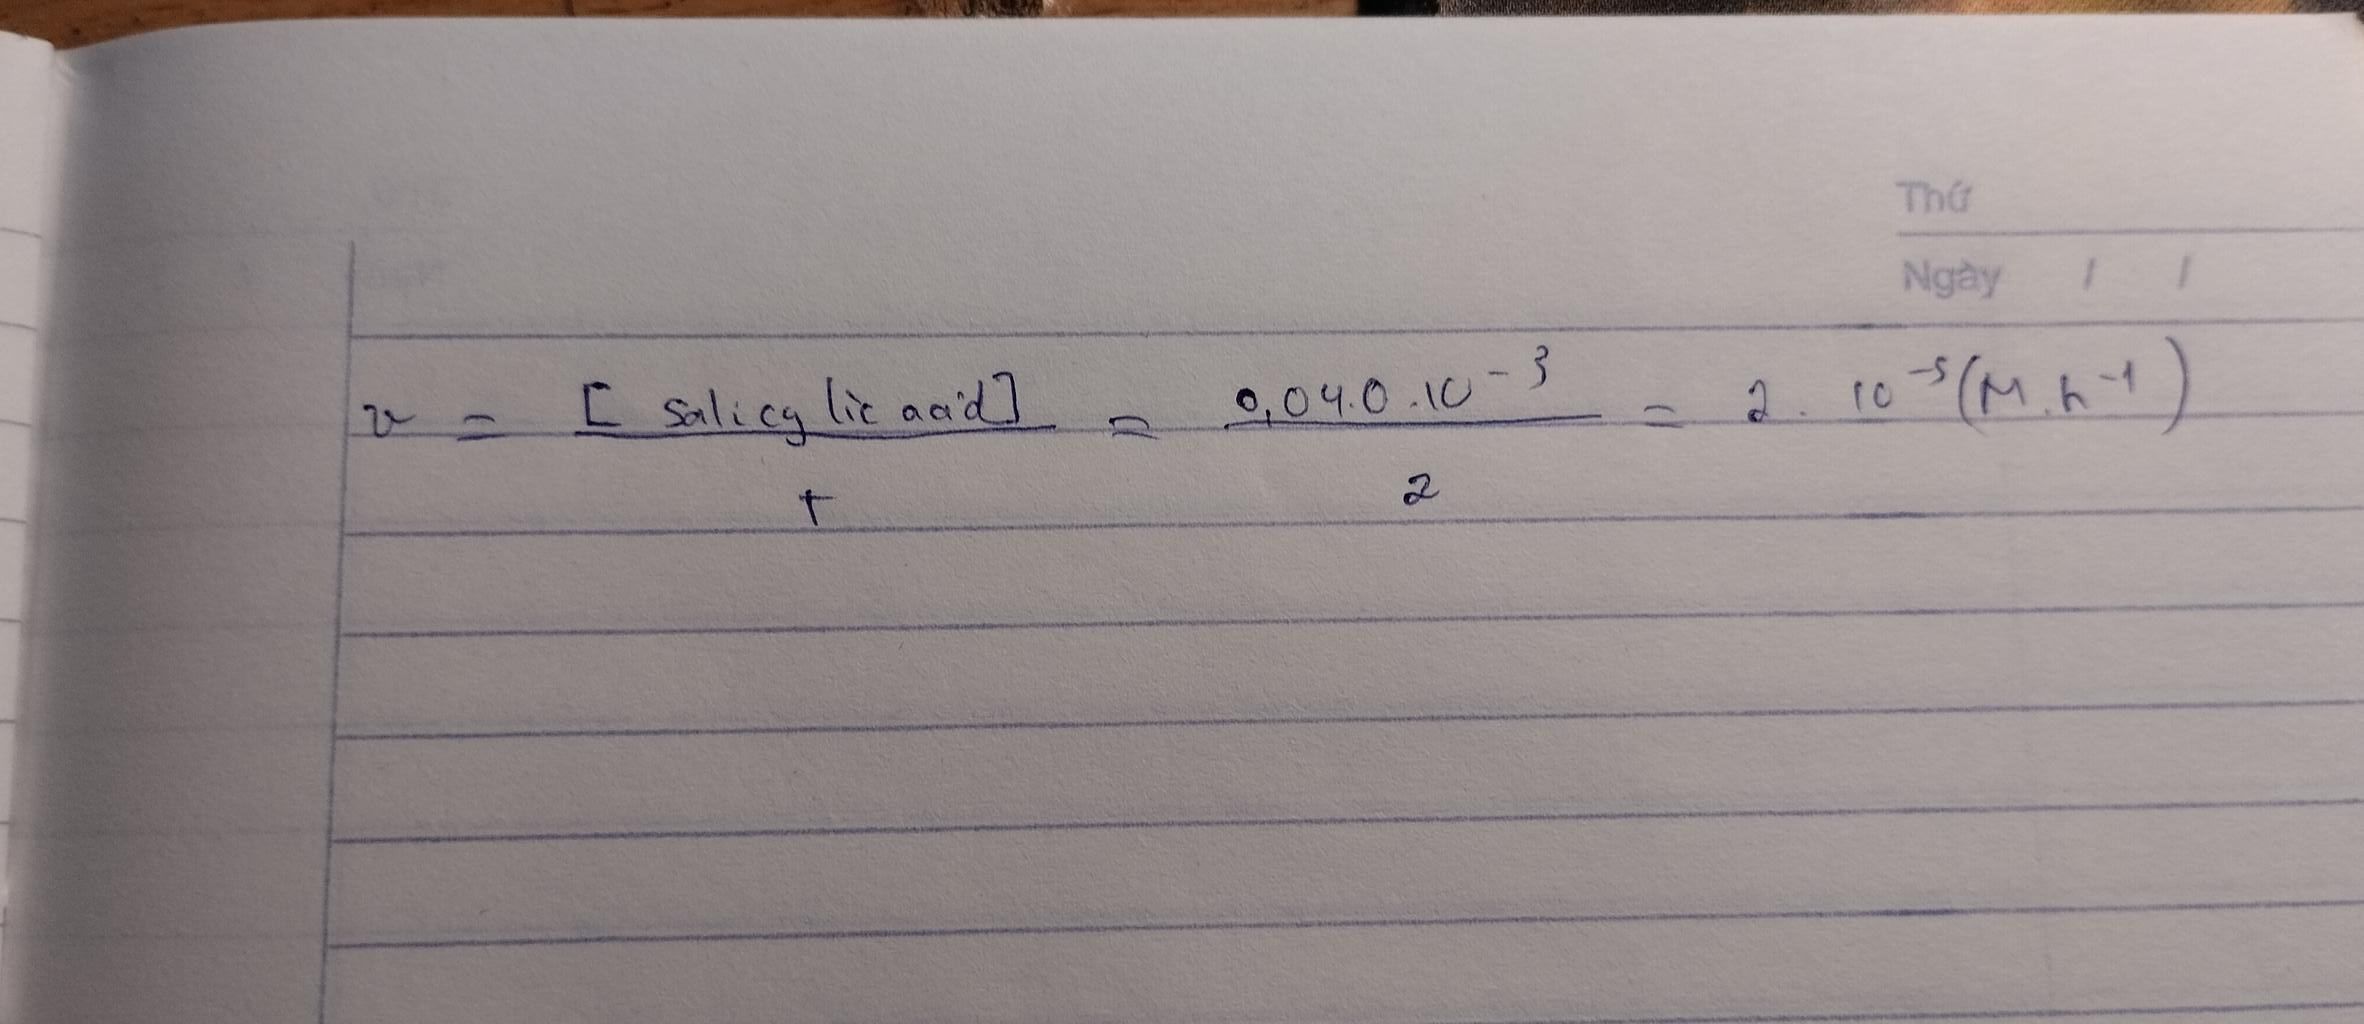 Thứ
Ngày / /
v = [salicylic acid] / t = 0,04.0.10⁻³ / 2 = 2.10⁻⁵ (M.h⁻¹)